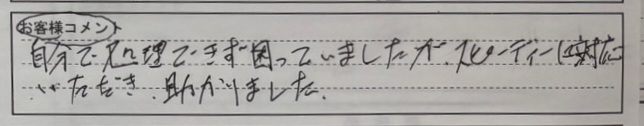 お客様コメント
自分で処理できず困っていましたが、スピーディーに対応
いただき、助かりました。